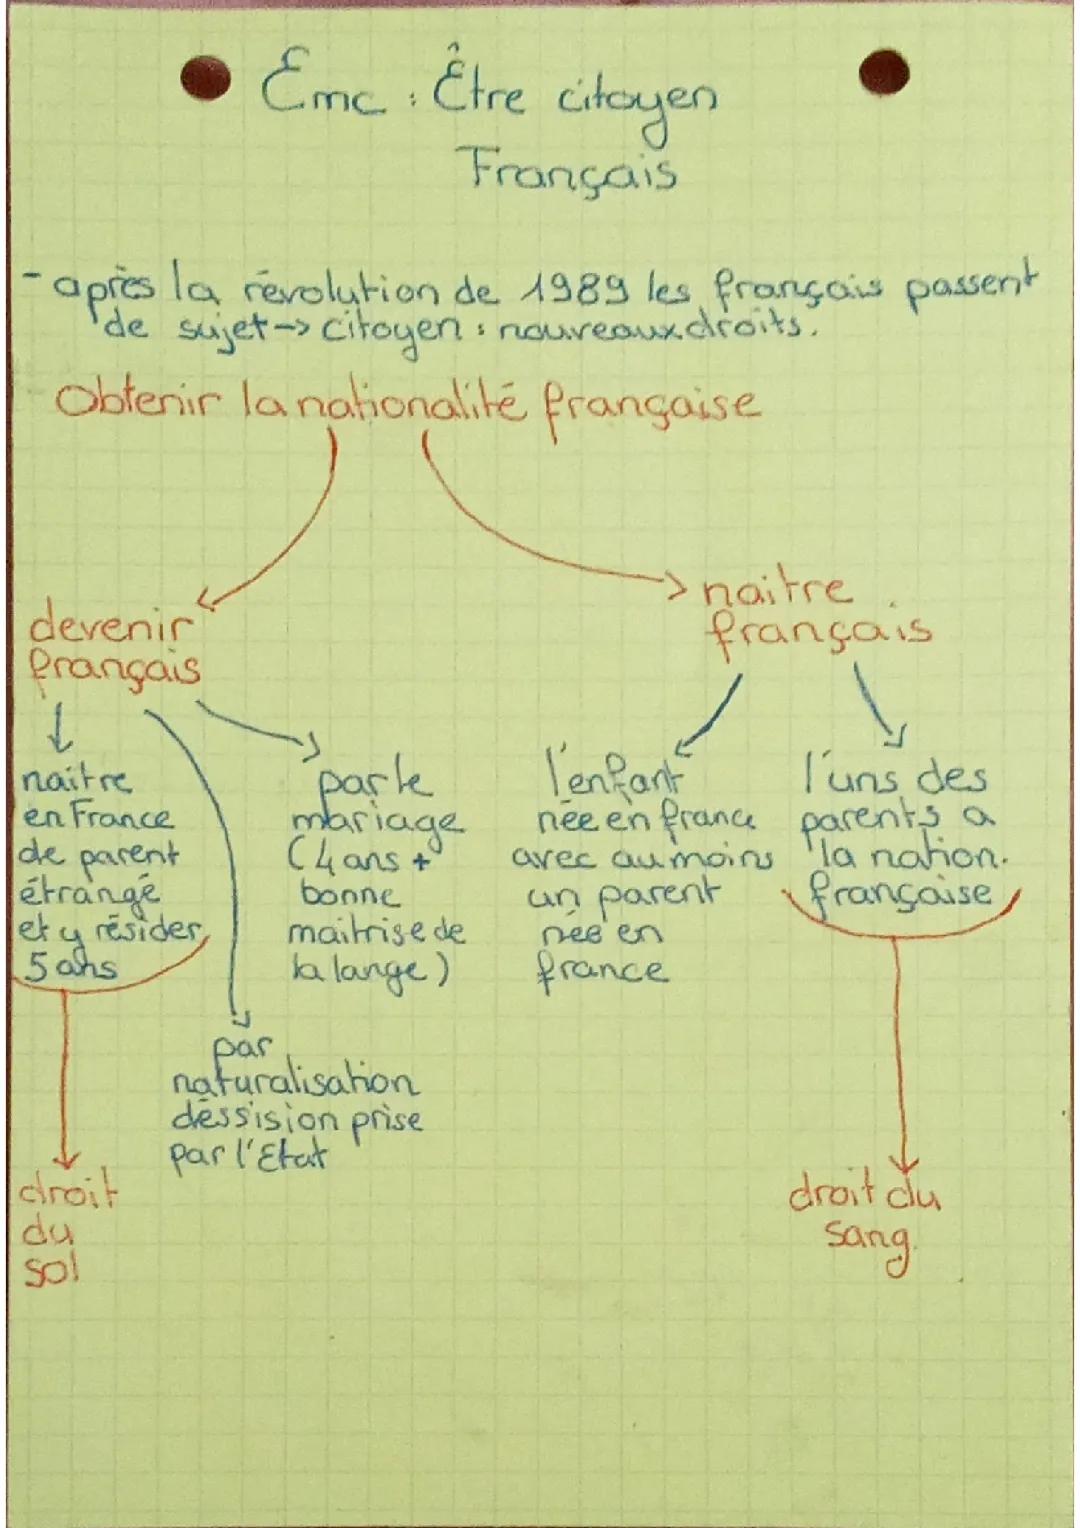 Emc : Être citoyen
Français
- après la révolution de 1989 les français passent
de sujet -> citoyen : nouveaux droits.
Obtenir la nationalité française
devenir
français
naitre
français
naitre
en France
de parent
étrangé
et y résider
5 ans
par le
mariage
(4 ans +
bonne
maitrise de
la lange)
l'enfant
née en france
avec au moins
un parent
née en
france
l'uns des
parents a
la nation.
française
par
naturalisation
déssision prise
par l'Etat
droit
du
sol
droit du
sang